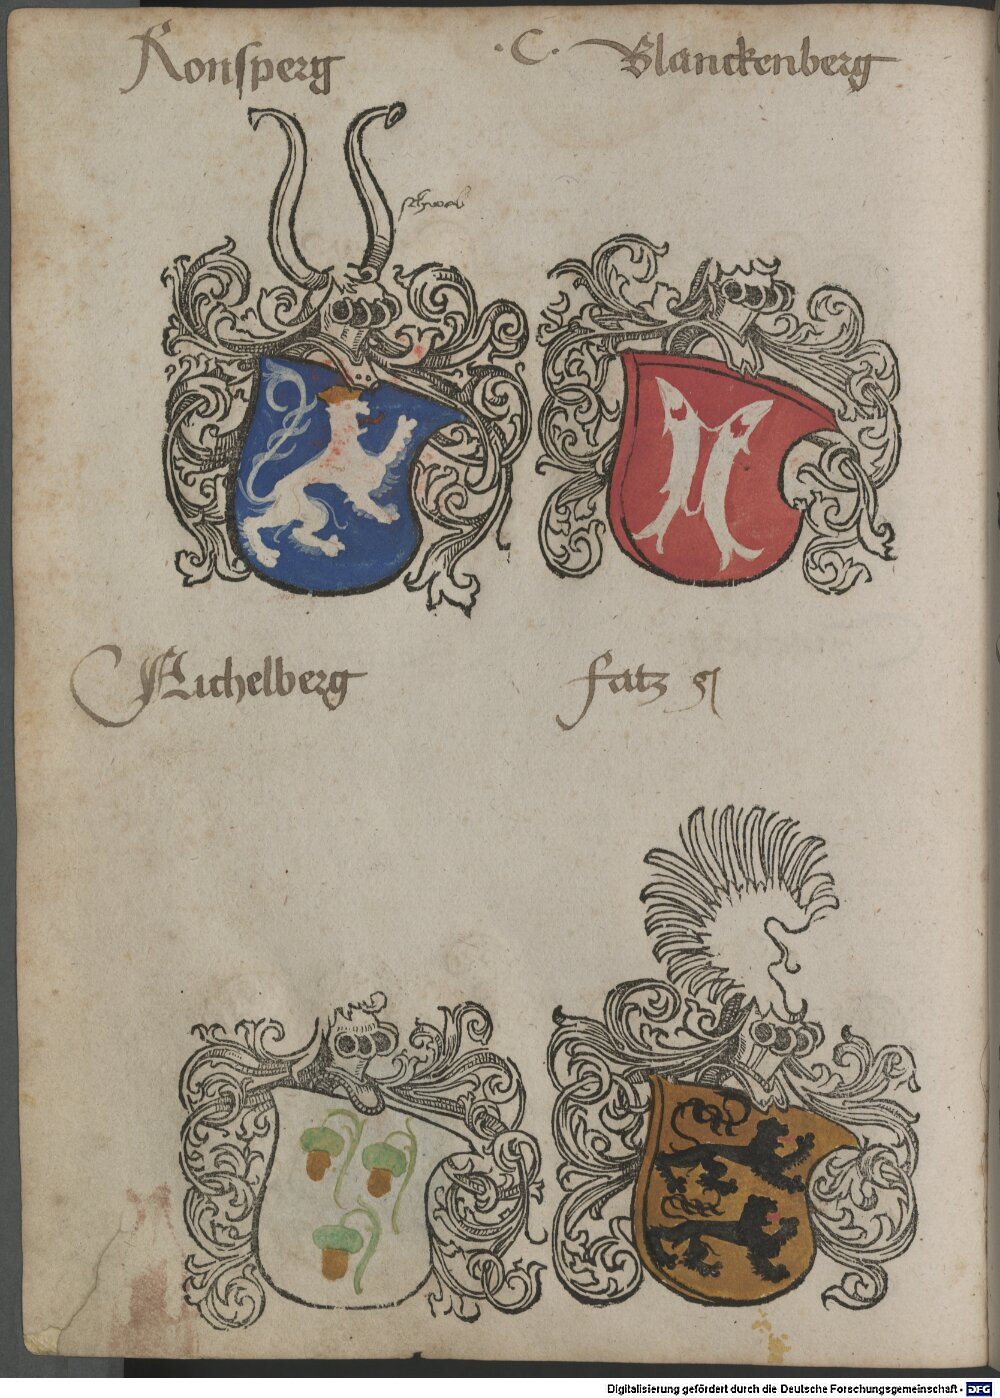 Konsperg
.C. Blanckenberg
Aichelberg
fatz
Digitalisierung gefördert durch die Deutsche Forschungsgemeinschaft - DFG